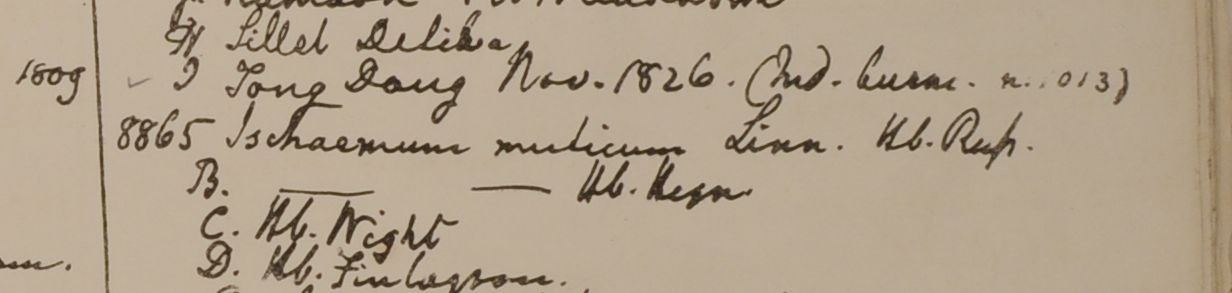 H Sillet Delibea
1809 I Tong Doug Nov. 1826. (Ind. burm. n. 1013)
8865 Ischaemum muticum Linn. Hb. Rup.
B. — — Hb. Heyn.
C. Hb. Wight
D. Hb. Finlayson.